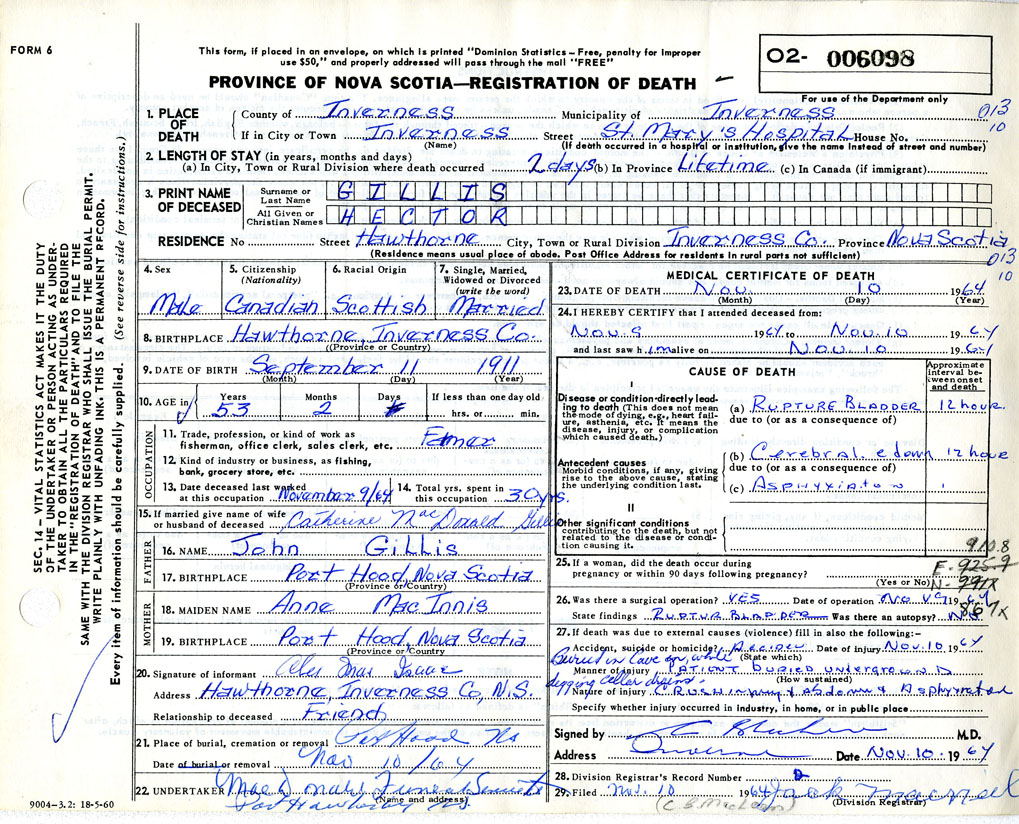 FORM 6
This form, if placed in an envelope, on which is printed "Dominion Statistics – Free, penalty for improper
use $50," and properly addressed will pass through the mail "FREE"
O2- 006098
PROVINCE OF NOVA SCOTIA—REGISTRATION OF DEATH
For use of the Department only
013
10
1. PLACE OF DEATH { County of Inverness Municipality of Inverness
If in City or Town Inverness Street St. Mary's Hospital House No.
(Name) (If death occurred in a hospital or institution, give the name instead of street and number)
2. LENGTH OF STAY (in years, months and days)
(a) In City, Town or Rural Division where death occurred 2 days (b) In Province Lifetime (c) In Canada (if immigrant)
3. PRINT NAME OF DECEASED
Surname or Last Name GILLIS
All Given or Christian Names HECTOR
RESIDENCE No Street Hawthorne City, Town or Rural Division Inverness Co. Province Nova Scotia
(Residence means usual place of abode. Post Office Address for residents in rural parts not sufficient)
013
10
4. Sex 5. Citizenship (Nationality) 6. Racial Origin 7. Single, Married, Widowed or Divorced (write the word)
Male Canadian Scottish Married
8. BIRTHPLACE Hawthorne, Inverness Co.
(Province or Country)
9. DATE OF BIRTH September 11 1911
(Month) (Day) (Year)
10. AGE in Years Months Days If less than one day old
53 2 hrs. or min.
OCCUPATION
11. Trade, profession, or kind of work as fisherman, office clerk, sales clerk, etc.
12. Kind of industry or business, as fishing, bank, grocery store, etc.
13. Date deceased last worked at this occupation November 9/64 14. Total yrs. spent in this occupation 30 yrs.
15. If married give name of wife or husband of deceased Catherine MacDonald Gillis
FATHER
16. NAME John Gillis
17. BIRTHPLACE Port Hood, Nova Scotia
(Province or Country)
MOTHER
18. MAIDEN NAME Anne MacInnis
19. BIRTHPLACE Port Hood, Nova Scotia
(Province or Country)
20. Signature of informant
Address Hawthorne, Inverness Co, N.S.
Relationship to deceased Friend
21. Place of burial, cremation or removal Port Hood NS
Date of burial or removal Nov 10/64
22. UNDERTAKER MacDonald Funeral
(Name and address)
Port Hawkesbury
9004–3.2: 18-5-60
SEC. 14 – VITAL STATISTICS ACT MAKES IT THE DUTY
OF THE UNDERTAKER OR PERSON ACTING AS UNDER-
TAKER TO OBTAIN ALL THE PARTICULARS REQUIRED
IN THE "REGISTRATION OF DEATH" AND TO FILE THE
SAME WITH THE DIVISION REGISTRAR WHO SHALL ISSUE THE BURIAL PERMIT.
WRITE PLAINLY WITH UNFADING INK. THIS IS A PERMANENT RECORD.
Every item of information should be carefully supplied. (See reverse side for instructions.)
MEDICAL CERTIFICATE OF DEATH
23. DATE OF DEATH Nov. 10 1964
(Month) (Day) (Year)
24. I HEREBY CERTIFY that I attended deceased from:
Nov. 9 1964 to Nov. 10 1964
and last saw him alive on Nov. 10 1964
CAUSE OF DEATH
Approximate interval between onset and death
I
Disease or condition directly leading to death (This does not mean the mode of dying, e.g., heart failure, asthenia, etc. It means the disease, injury, or complication which caused death.)
(a) RUPTURE BLADDER 12 hour.
due to (or as a consequence of)
Antecedent causes
Morbid conditions, if any, giving rise to the above cause, stating the underlying condition last.
(b) Cerebral 12 hour
due to (or as a consequence of)
(c)
II
Other significant conditions contributing to the death, but not related to the disease or condition causing it.
910.8
E-925.9
N-991X
867x
25. If a woman, did the death occur during pregnancy or within 90 days following pregnancy?
(Yes or No)
26. Was there a surgical operation? YES Date of operation Nov 9 1964
State findings RUPTUR BLADDER Was there an autopsy? No
27. If death was due to external causes (violence) fill in also the following:–
Accident, suicide or homicide? Date of injury Nov. 10 1964
(State which)
Buried in cave in, while
digging cellar drain.
Manner of injury PATIENT BURIED UNDERGROUND
(How sustained)
Nature of injury CRUSH injury
Specify whether injury occurred in industry, in home, or in public place
Signed by M.D.
Address Inverness Date Nov. 10 1964
28. Division Registrar's Record Number
29. Filed Nov. 10 1964
(Division Registrar)